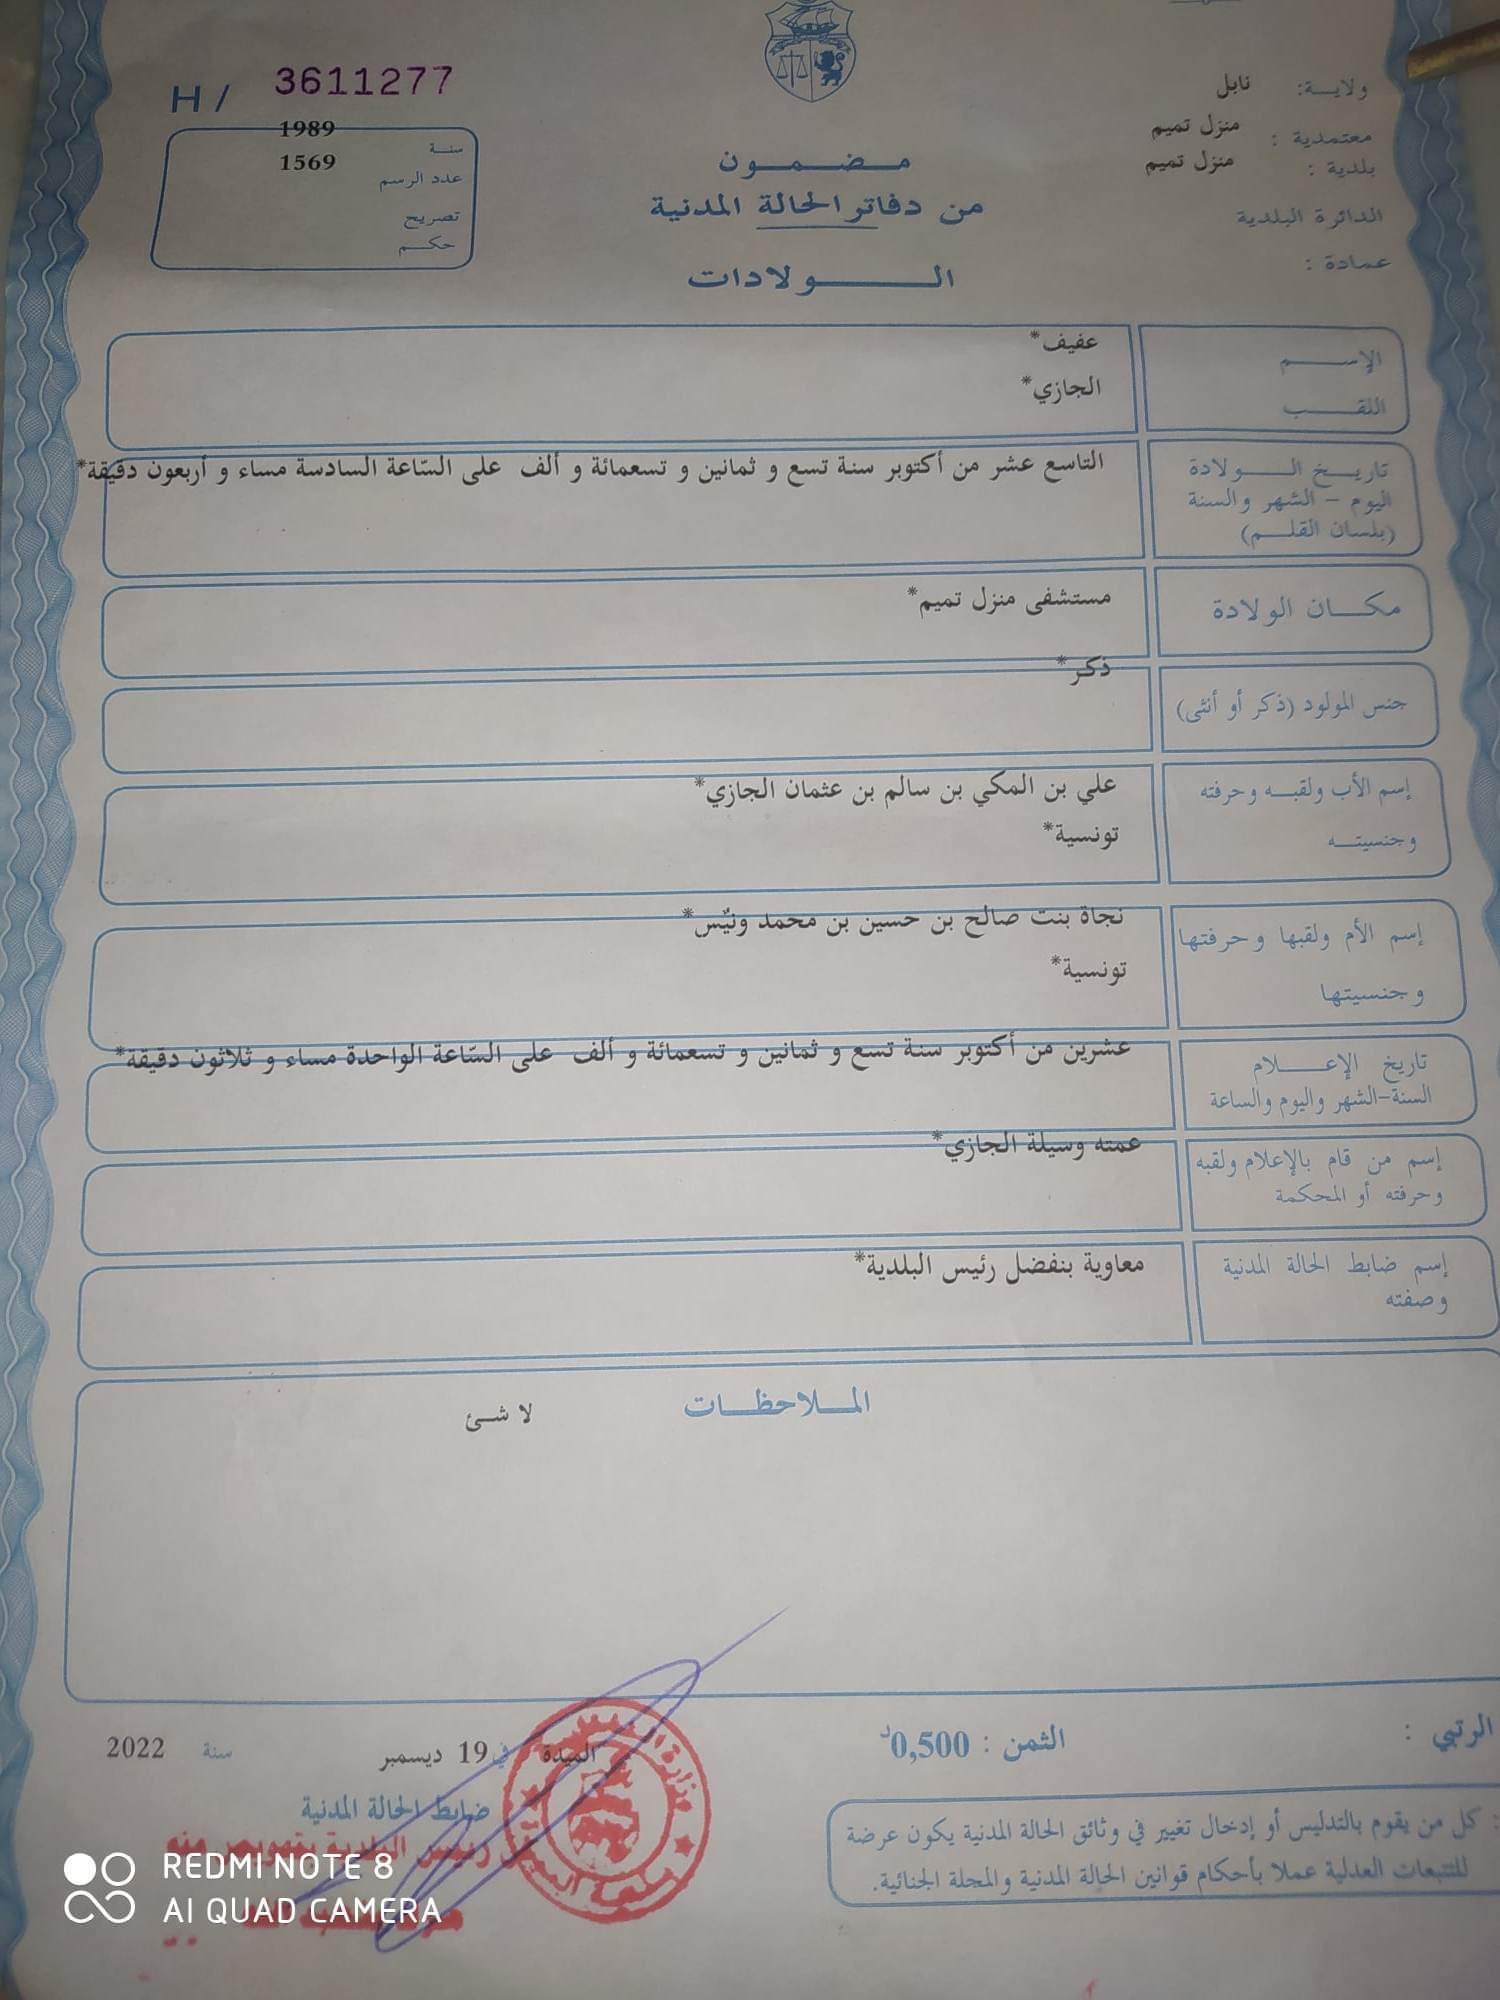 H / 3611277
ولايـــة: نابل
معتمدية : منزل تميم
بلدية : منزل تميم
الدائرة البلدية
عمادة :
سنة 1989
عدد الرسم 1569
تصريح
حكم
مضمون
من دفاتر الحالة المدنية
الـولادات
الإسم عفيف*
اللقب الجازي*
تاريخ الولادة التاسع عشر من أكتوبر سنة تسع و ثمانين و تسعمائة و ألف على السّاعة السادسة مساء و أربعون دقيقة*
اليوم - الشهر والسنة
(بلسان القلم)
مكان الولادة مستشفى منزل تميم*
جنس المولود (ذكر أو أنثى) ذكر*
إسم الأب ولقبه وحرفته علي بن المكي بن سالم بن عثمان الجازي*
وجنسيته تونسية*
إسم الأم ولقبها وحرفتها نجاة بنت صالح بن حسين بن محمد ونيّس*
وجنسيتها تونسية*
تاريخ الإعلام عشرين من أكتوبر سنة تسع و ثمانين و تسعمائة و ألف على السّاعة الواحدة مساء و ثلاثون دقيقة*
السنة-الشهر واليوم والساعة
إسم من قام بالإعلام ولقبه عمته وسيلة الجازي*
وحرفته أو المحكمة
إسم ضابط الحالة المدنية معاوية بنفضل رئيس البلدية*
وصفته
الملاحظات
لا شئ
الرتبي :
الثمن : 0,500د
الميدة في 19 ديسمبر سنة 2022
ضابط الحالة المدنية
رئيس البلدية بتفويض منه
كل من يقوم بالتدليس أو إدخال تغيير في وثائق الحالة المدنية يكون عرضة
للتتبعات العدلية عملا بأحكام قوانين الحالة المدنية والمجلة الجنائية.
REDMI NOTE 8
AI QUAD CAMERA